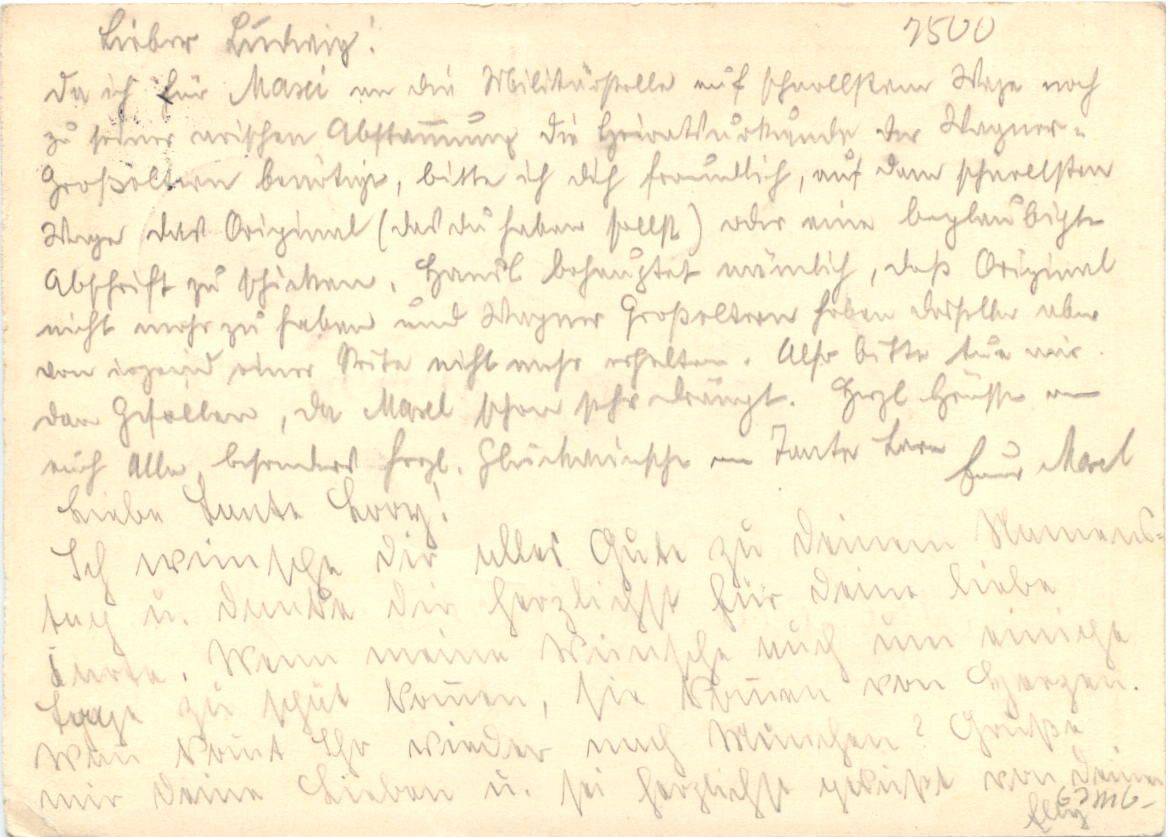 Lieber Ludwig!
7500
Da ich für Maxi an die Militärstelle auf schnellstem Wege noch
zu seiner arischen Abstam̅ung die Heiratsurkunde der Wagner-
Großeltern benötige, bitte ich dich freundlich, auf dem schnellsten
Wege das Original (das du haben sollst) oder eine beglaubigte
Abschrift zu schicken. Hansl behauptet nämlich, daß Original
nicht mehr zu haben und Wagner Großeltern haben dasselbe aber
von irgend einer Seite nicht mehr erhalten. Also bitte tue mir
den Gefallen, da Maxl schon sehr drängt. Herzl Grüsse an
euch Alle, besonders herzl. Glückwünsche an Tante
Euer Maxl
Liebe Tante Lory!
Ich wünsche dir alles Gute zu Deinem Namens-
tag u. danke dir herzlichst für deine liebe
Karte. Wenn meine Wünsche auch um einige
Tage zu spät kom̅en, sie kom̅en von Herzen.
Wan̅ kom̅t Ihr wieder nach München? Grüße
mir deine Lieben u. sei herzlichst gegrüßt von Deiner
Elly